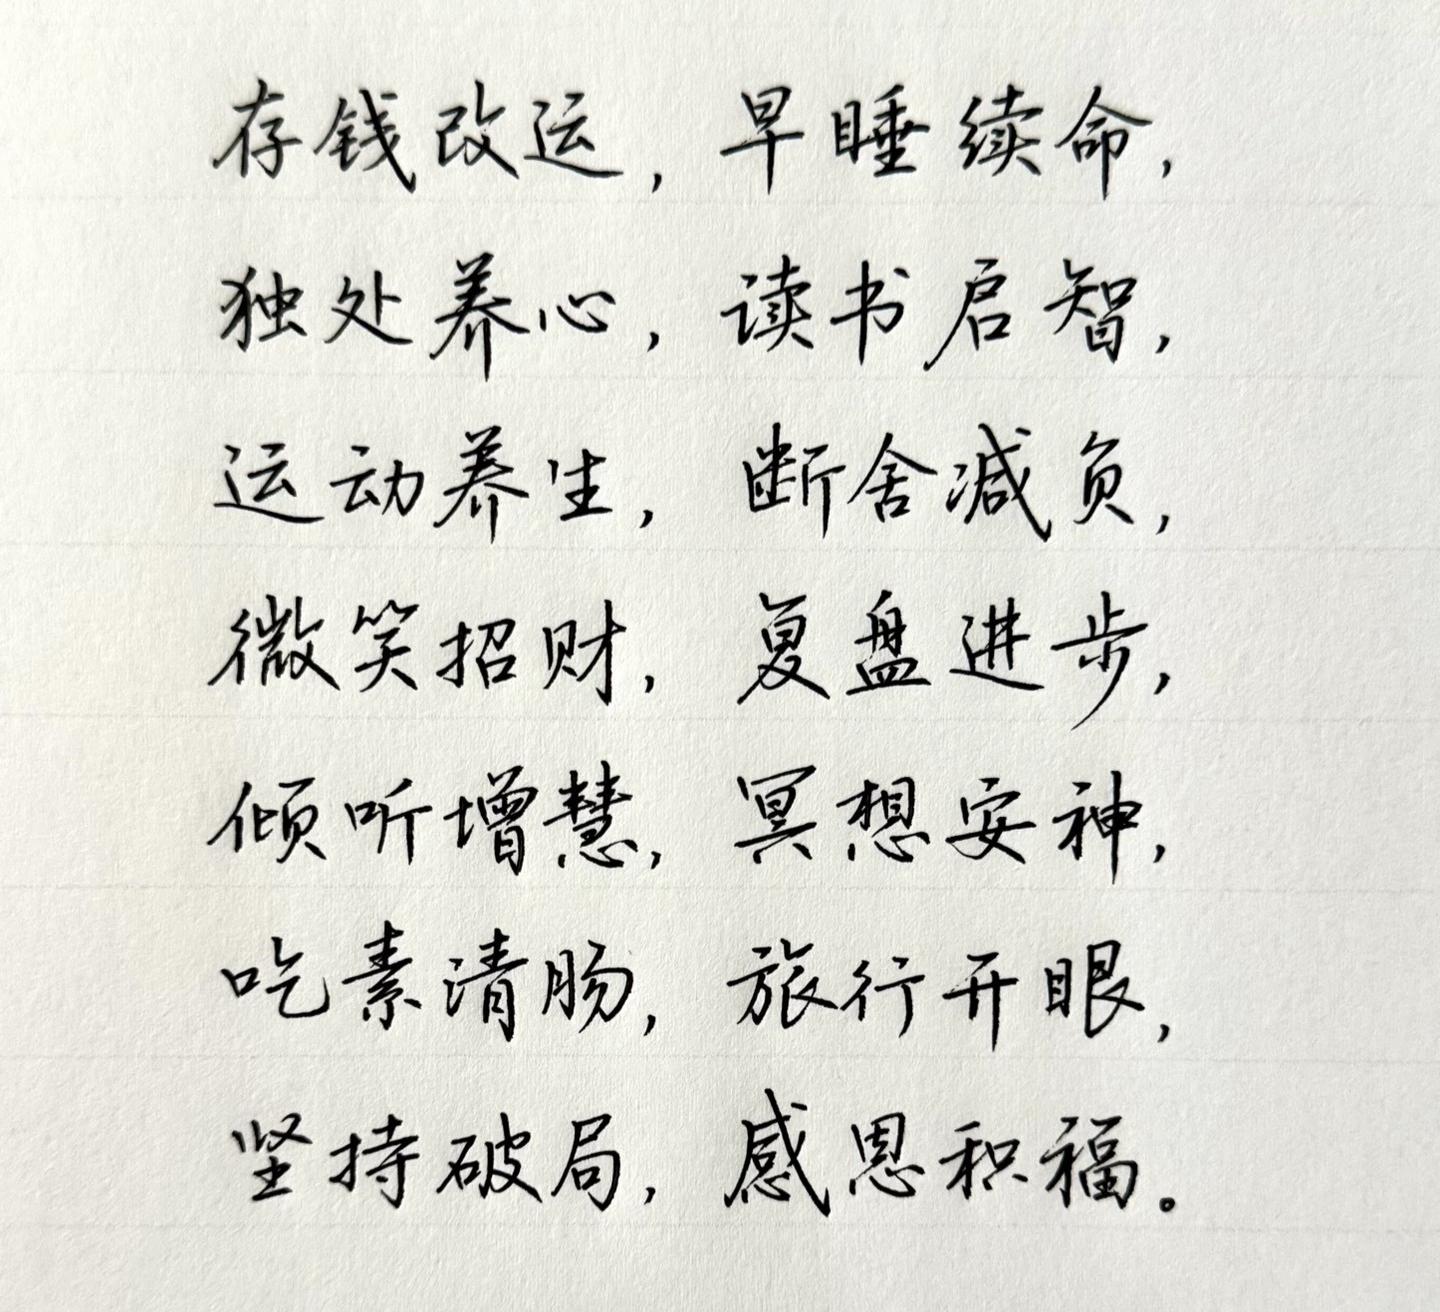 存钱改运，早睡续命，
独处养心，读书启智，
运动养生，断舍减负，
微笑招财，复盘进步，
倾听增慧，冥想安神，
吃素清肠，旅行开眼，
坚持破局，感恩积福。